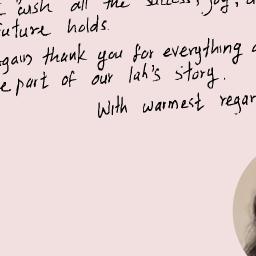 wish all the success, joy,
future holds.
again thank you for everything
e part of our lab's story.
With warmest regar